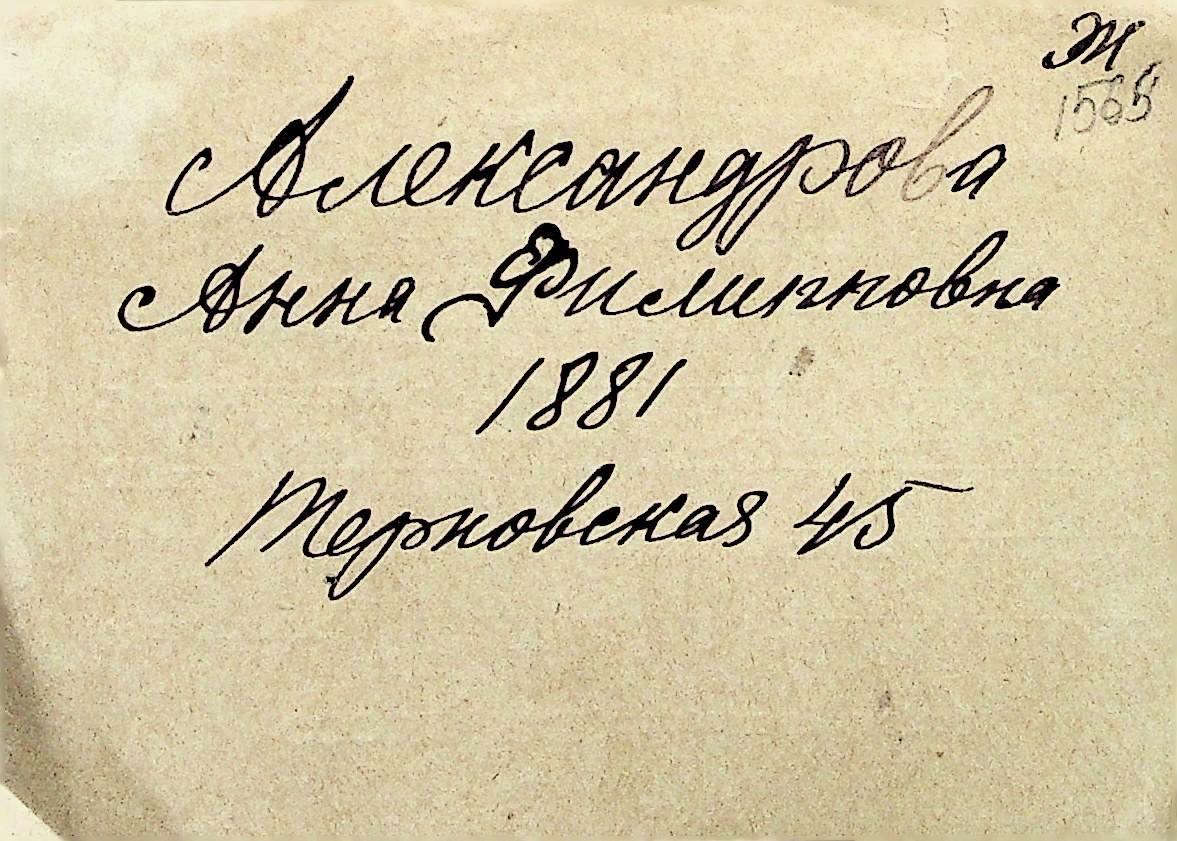 Ж
Александрова
Анна Филипповна
1881
Терновская 45